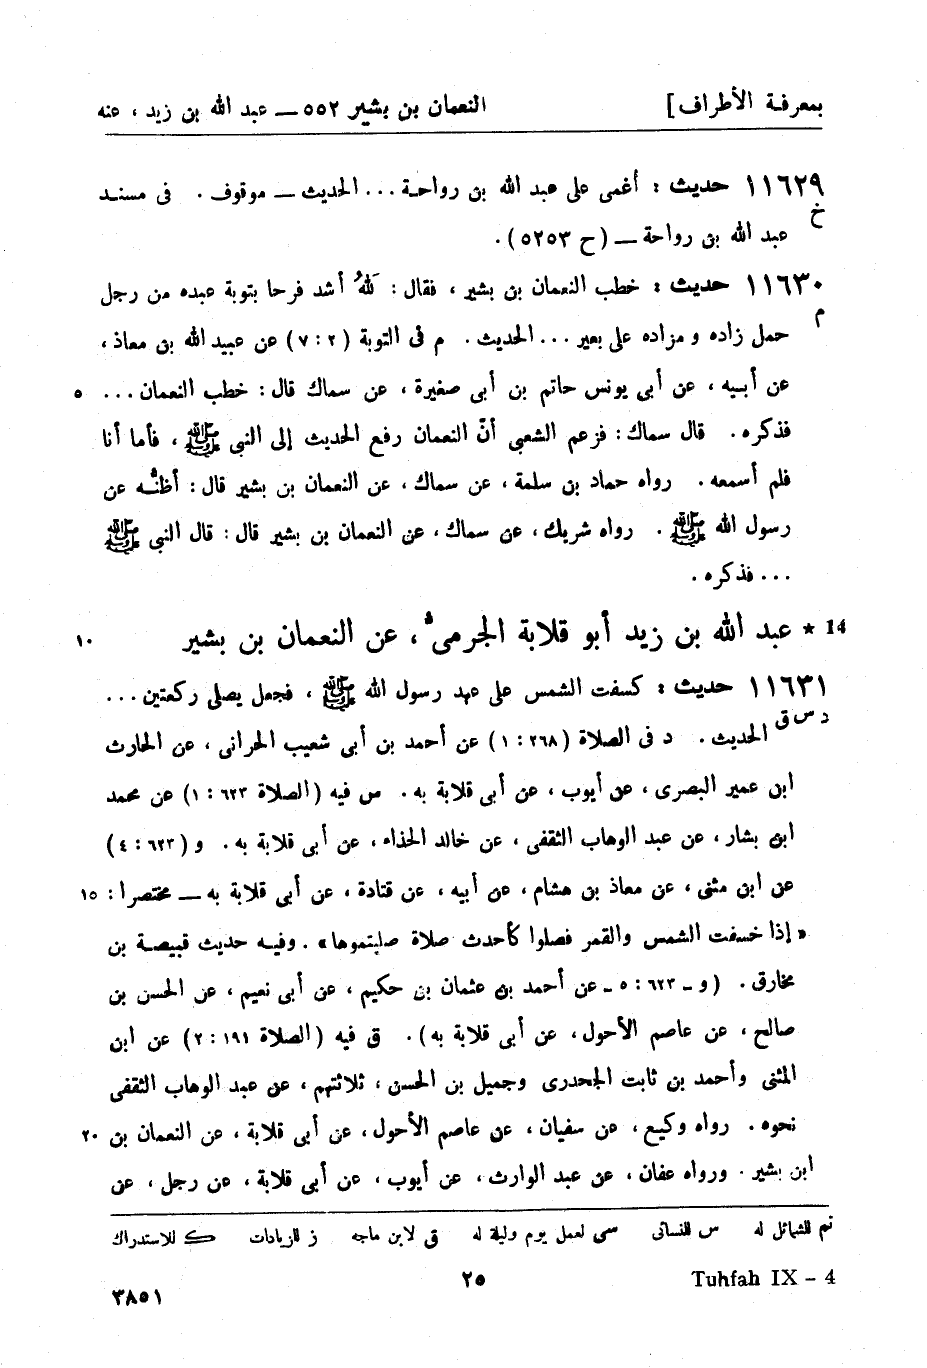 بمعرفة الأطراف] النعمان بن بشير ٥٥٢ ــ عبد الله بن زيد ، عنه
١١٦٢٩ حديث : أغمى على عبد الله بن رواحة ... الحديث ــ موقوف . فى مسند
خ
عبد الله بن رواحة ــ (ح ٥٢٥٣) .
١١٦٣٠ حديث : خطب النعمان بن بشير ، فقال : لَلهُ أشد فرحا بتوبة عبده من رجل
م
حمل زاده و مزاده على بعير ... الحديث . م فى التوبة (٢ : ٧) عن عبيد الله بن معاذ ،
عن أبيه ، عن أبى يونس حاتم بن أبى صغيرة ، عن سماك قال : خطب النعمان ... ٥
فذكره . قال سماك : فزعم الشعبى أنّ النعمان رفع الحديث إلى النبى ﷺ ، فأما أنا
فلم أسمعه . رواه حماد بن سلمة ، عن سماك ، عن النعمان بن بشير قال : أظنُّه عن
رسول الله ﷺ . رواه شريك ، عن سماك ، عن النعمان بن بشير قال : قال النبى ﷺ
... فذكره .
14 * عبد الله بن زيد أبو قلابة الجرمى ، عن النعمان بن بشير ١٠
١١٦٣١ حديث : كسفت الشمس على عهد رسول الله ﷺ ، فجعل يصلى ركعتين ...
د س ق
الحديث . د فى الصلاة (٢٦٨ : ١) عن أحمد بن أبى شعيب الحرانى ، عن الحارث
ابن عمير البصرى ، عن أيوب ، عن أبى قلابة به . س فيه (الصلاة ٦٢٣ : ١) عن محمد
ابن بشار ، عن عبد الوهاب الثقفى ، عن خالد الحذاء ، عن أبى قلابة به . و (٦٢٣ : ٤)
عن ابن مثنى ، عن معاذ بن هشام ، عن أبيه ، عن قتادة ، عن أبى قلابة به ــ مختصرا : ١٥
«إذا خسفت الشمس والقمر فصلوا كأحدث صلاة صليتموها» . وفيه حديث قبيصة بن
مخارق . (و ـ ٦٢٣ : ٥ ـ عن أحمد بن عثمان بن حكيم ، عن أبى نعيم ، عن الحسن بن
صالح ، عن عاصم الأحول ، عن أبى قلابة به) . ق فيه (الصلاة ١٩١ : ٢) عن ابن
المثنى وأحمد بن ثابت الجحدرى وجميل بن الحسن ، ثلاثتهم ، عن عبد الوهاب الثقفى
نحوه . رواه وكيع ، عن سفيان ، عن عاصم الأحول ، عن أبى قلابة ، عن النعمان بن ٢٠
ابن بشير . ورواه عفان ، عن عبد الوارث ، عن أيوب ، عن أبى قلابة ، عن رجل ، عن
تم للشمائل له س للنسائى سى لعمل يوم وليلة له ق لابن ماجه ز للزيادات ك للاستدراك
Tuhfah IX - 4 ٢٥
٣٨٥١